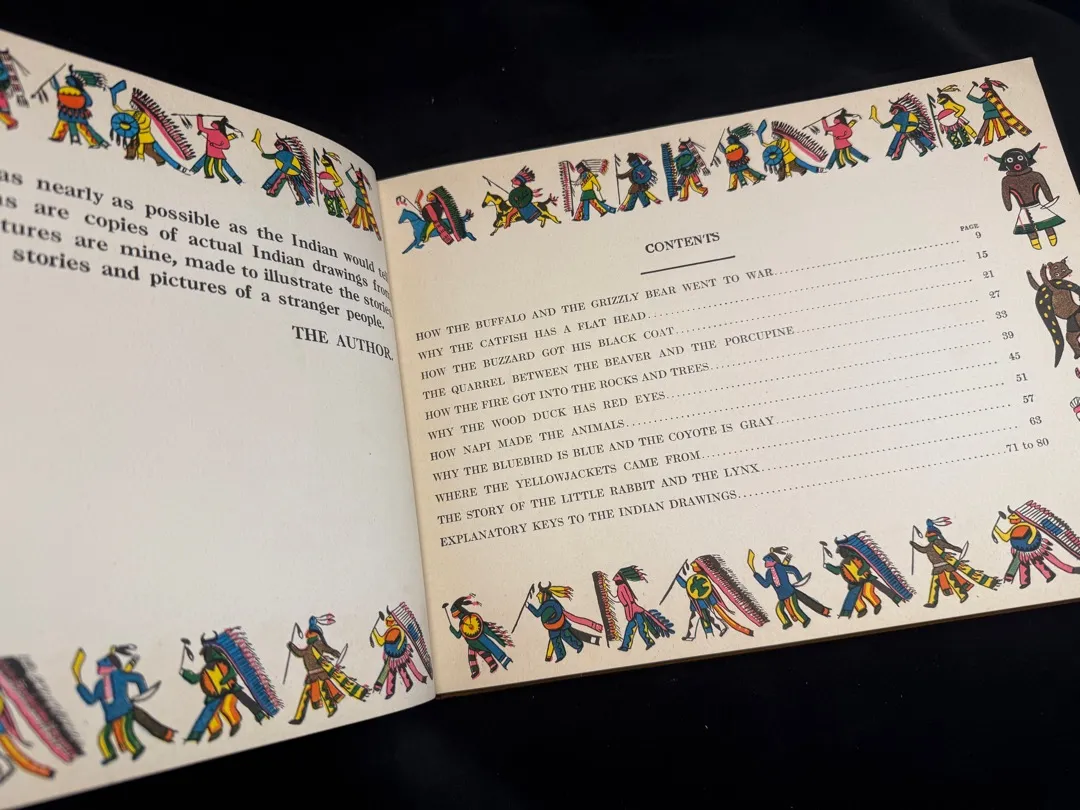 as nearly as possible as the Indian would
are copies of actual Indian drawings from
are mine, made to illustrate the stories,
stories and pictures of a stranger people.
THE AUTHOR.
CONTENTS
PAGE
HOW THE BUFFALO AND THE GRIZZLY BEAR WENT TO WAR 9
WHY THE CATFISH HAS A FLAT HEAD 15
HOW THE BUZZARD GOT HIS BLACK COAT 21
THE QUARREL BETWEEN THE BEAVER AND THE PORCUPINE 27
HOW THE FIRE GOT INTO THE ROCKS AND TREES 33
WHY THE WOOD DUCK HAS RED EYES 39
HOW NAPI MADE THE ANIMALS 45
WHY THE BLUEBIRD IS BLUE AND THE COYOTE IS GRAY 51
WHERE THE YELLOWJACKETS CAME FROM 57
THE STORY OF THE LITTLE RABBIT AND THE LYNX 63
EXPLANATORY KEYS TO THE INDIAN DRAWINGS 71 to 80